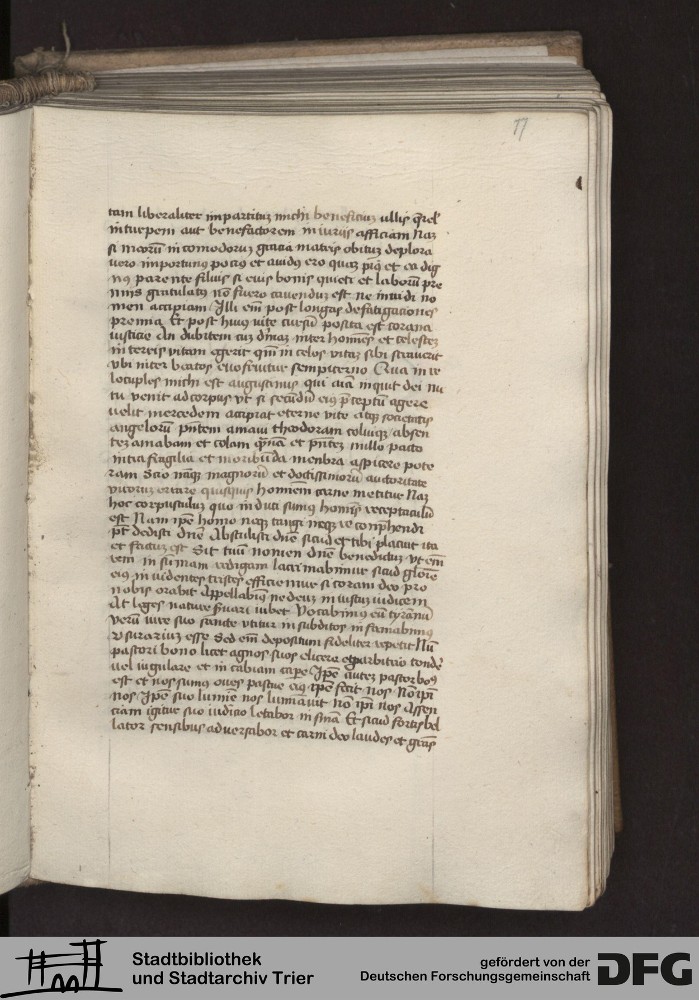 17
tam liberaliter impartituz michi beneficiuz ullis q̄rel'
inturpem aut benefactorem iniuriis afficiam Naz
si meorū incomodoruz gratia matris obituz deplora
vero importunus pocius et auidus ero quaz pius et ea dig
nus parente filius si eius bonis quieti et laborū pre
miis gratulatus nō fuero cauenduz est ne inuidi no
men accipiam Illi em̄ post longas defatigaciones
premia Et post huius vite cursū posita est corona
iusticie An dubitem
in terris vitam egerit in celos vitaz sibi
vbi inter beatos euo fruitur sempiterno Qua in re
locuples michi est augustinus qui aīa inquit dei nu
tu venit ad corpus vt si secūdū eius p̄ceptū agere
uelit mercedem accipiat eterne vite atqz societatis
angelorū pn̄tem amaui theodoram coluiqz absen
tez amabam et colam et pn̄tez nullo pacto
fragilia et moribūda menbra aspicere pote
ram Scio magnorū et doctissimorū auctoritate
viroruz errare quisquis hominem carne metitur Naz
hoc corpustuluz quo induti sumus hominis receptaculū
est Nam ipē homo neqz tangi neqz conp̄hendi
pt̄ dedisti dn̄e Abstulisti dn̄e sicud et tibi placuit ita
et factuz est Sit tuū nomen dn̄e benedictuz vt em̄
rem in sūmam redigam lacrimabimur sicud glorie
eius inuidentes tristes efficiemur si coram deo pro
nobis orabit Appellabimus ne deuz iniustuz iudicem
At leges nature fuari iubet Vocabimus eū tyrānū
verū iure suo sancte vtitur in subditos infamabimus
vsurarius esse Sed em̄ depositum fideliter repetit Nū
pastori bono licet agnos suos elicere et parbitrio tondere
uel iugulare et in caulam cape Ipē autez pastor bo9
est et nos sumus oues pascue eius ipē fecit nos Nō ipī
nos Ipē suo lumīe nos lumīauit nō ipī nos Assen
ciam igitur suo iudicio letabor in sūa Et sicud fortis bel
lator sensibus aduersabor et carni deo laudes et grās
Stadtbibliothek
und Stadtarchiv Trier
gefördert von der
Deutschen Forschungsgemeinschaft
DFG